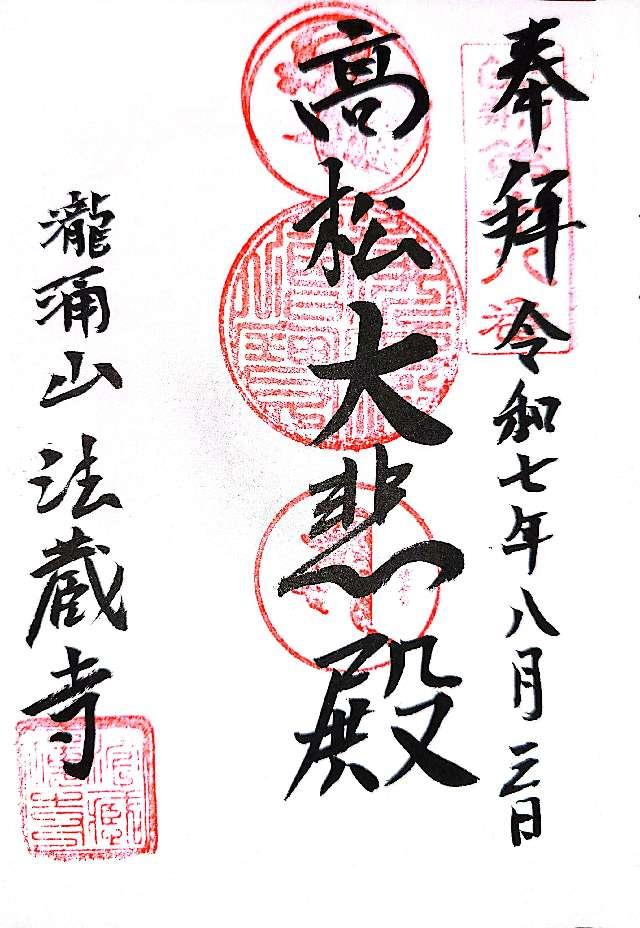 奉拜 令和七年八月三日
高松大悲殿
瀧涌山 法蔵寺